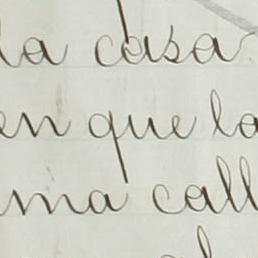 la casa
en que la
ma call